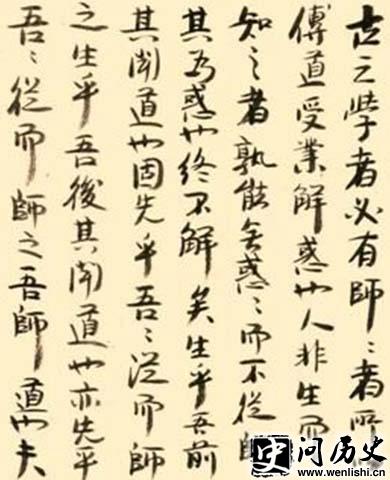 古之學者必有師〻者所
傳道受業解惑也人非生而
知之者孰能無惑〻而不從師
其為惑也終不解矣生乎吾前
其聞道也固先乎吾〻從而師
之生乎吾後其聞道也亦先乎
吾〻從而師之吾師道也夫
问历史
www.wenlishi.com